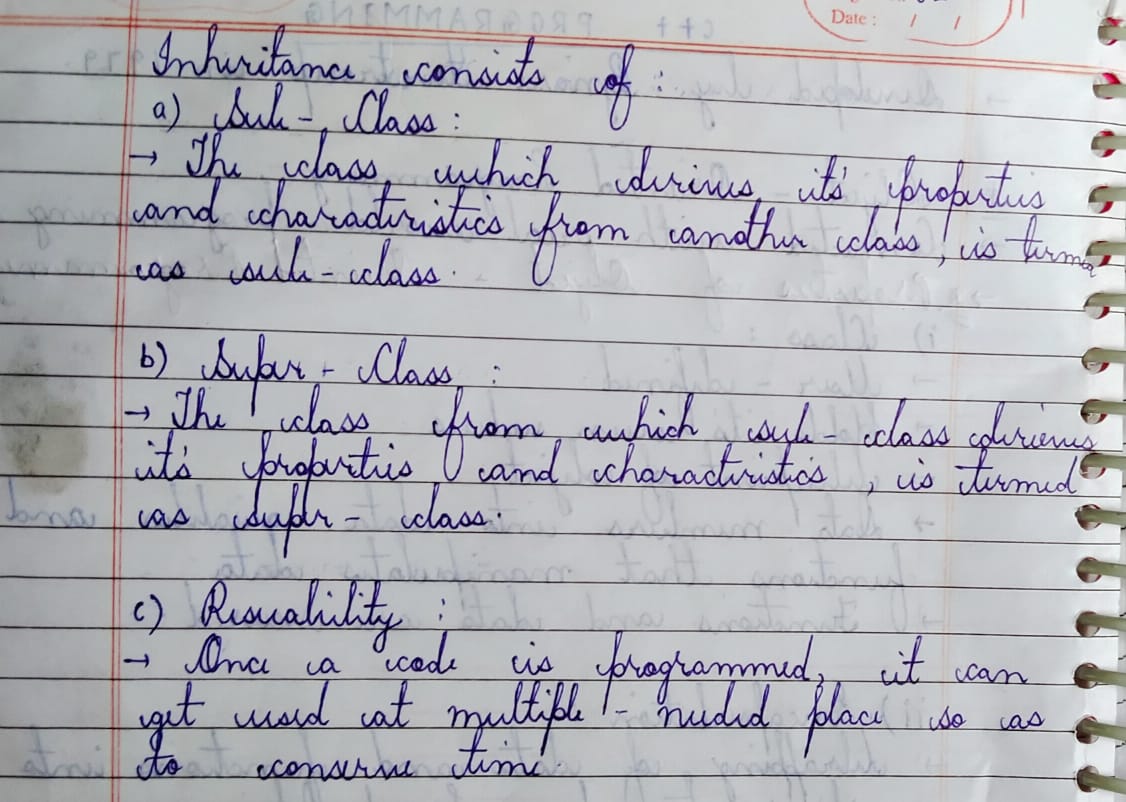 Date : / /
Inheritance consists of :
a) Sub - Class :
→ The class which derives it's properties
and characteristics from another class, is termed
as sub - class.
b) Super - Class :
→ The class from which sub - class derives
it's properties and characteristics, is termed
as super - class.
c) Reusability :
→ Once a code is programmed, it can
get used at multiple - needed place so as
to conserve time.